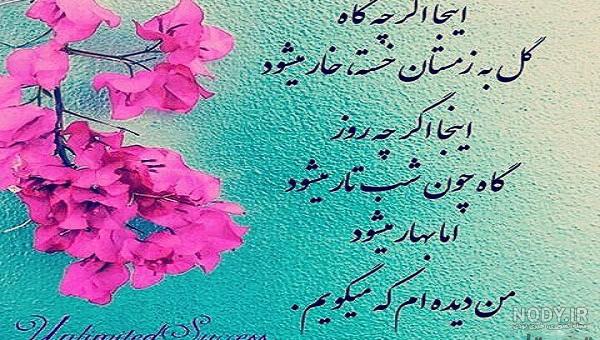 اینجا اگر چه گاه
گل به زمستان خسته، خار میشود
اینجا اگر چه روز
گاه چون شب تار میشود
اما بهار میشود
من دیده ام که میگویم.
NODY.IR
Unlimited Success